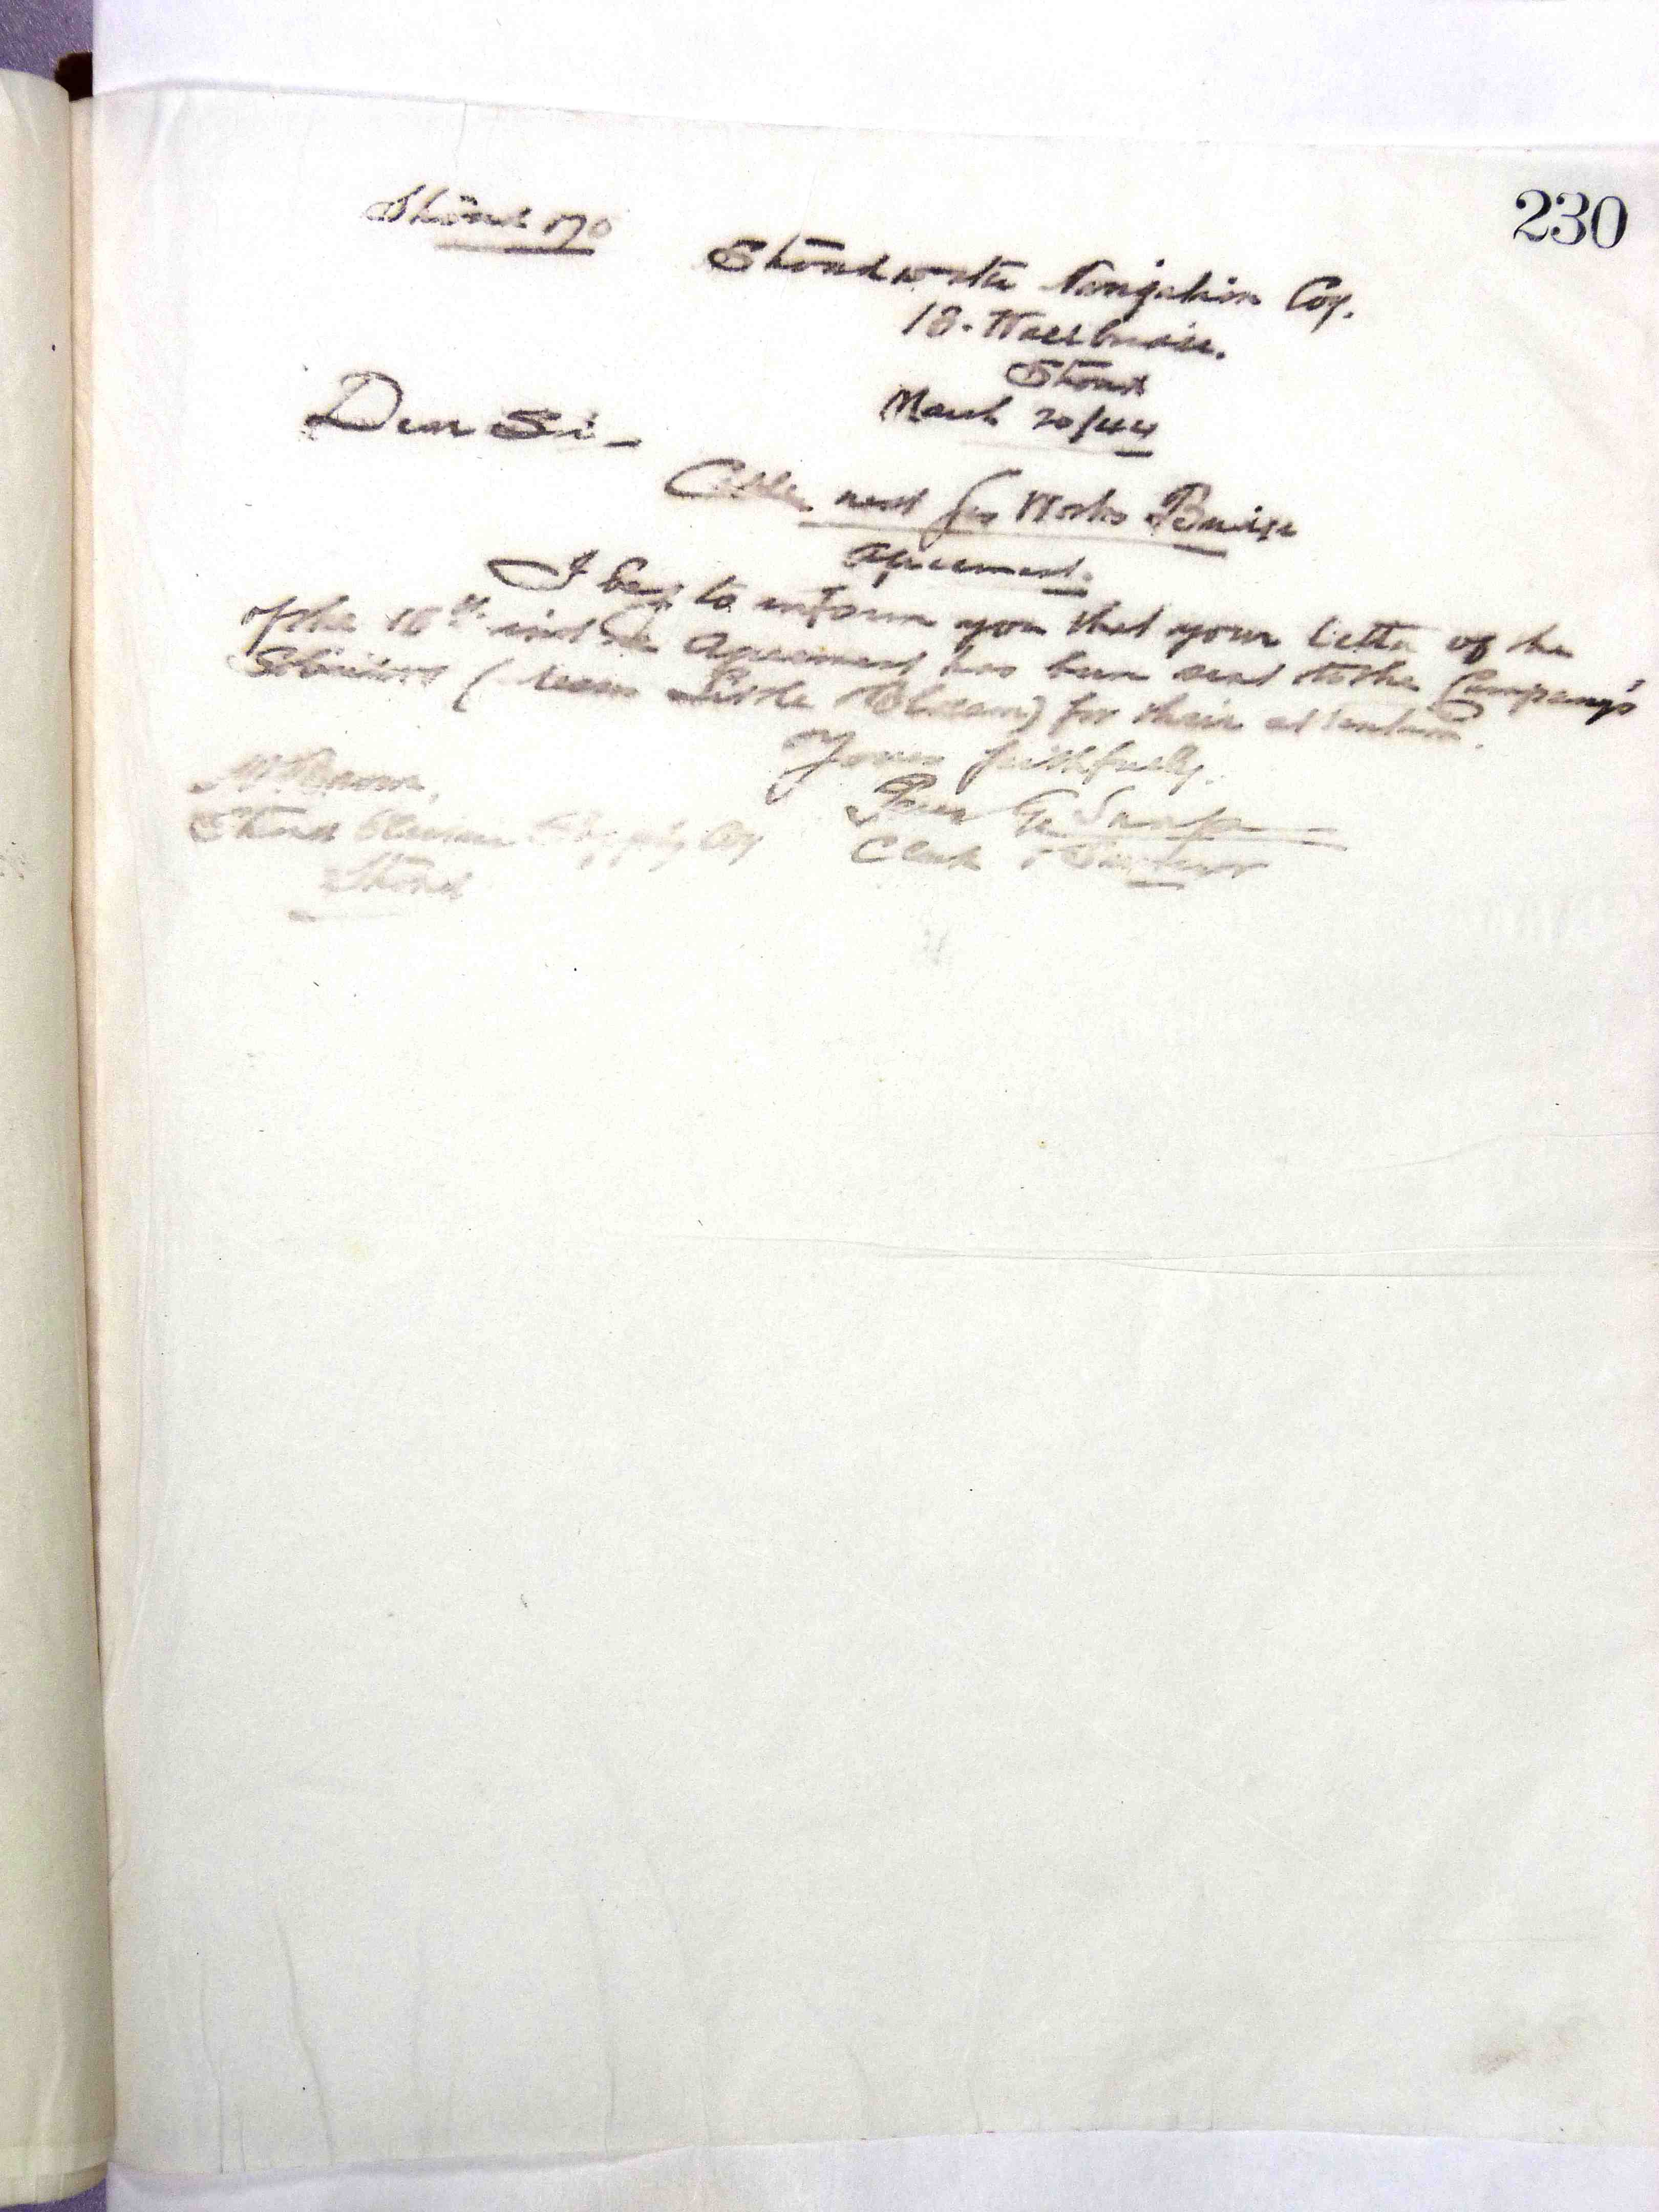 230
Stroud 170
Stroudwater Navigation Coy.
18. Wallbridge.
Stroud
March 20/44
Dear Sir -
Cable near Gas Works Bridge
Agreement.
I beg to inform you that your letter of the
of the 18th inst re Agreement has been sent to the Company's
Solicitors (Messrs Little & Bloxam) for their attention.
Yours faithfully.
G. Snape
Clerk &
Mr Brown,
Stroud Electric Supply Coy
Stroud